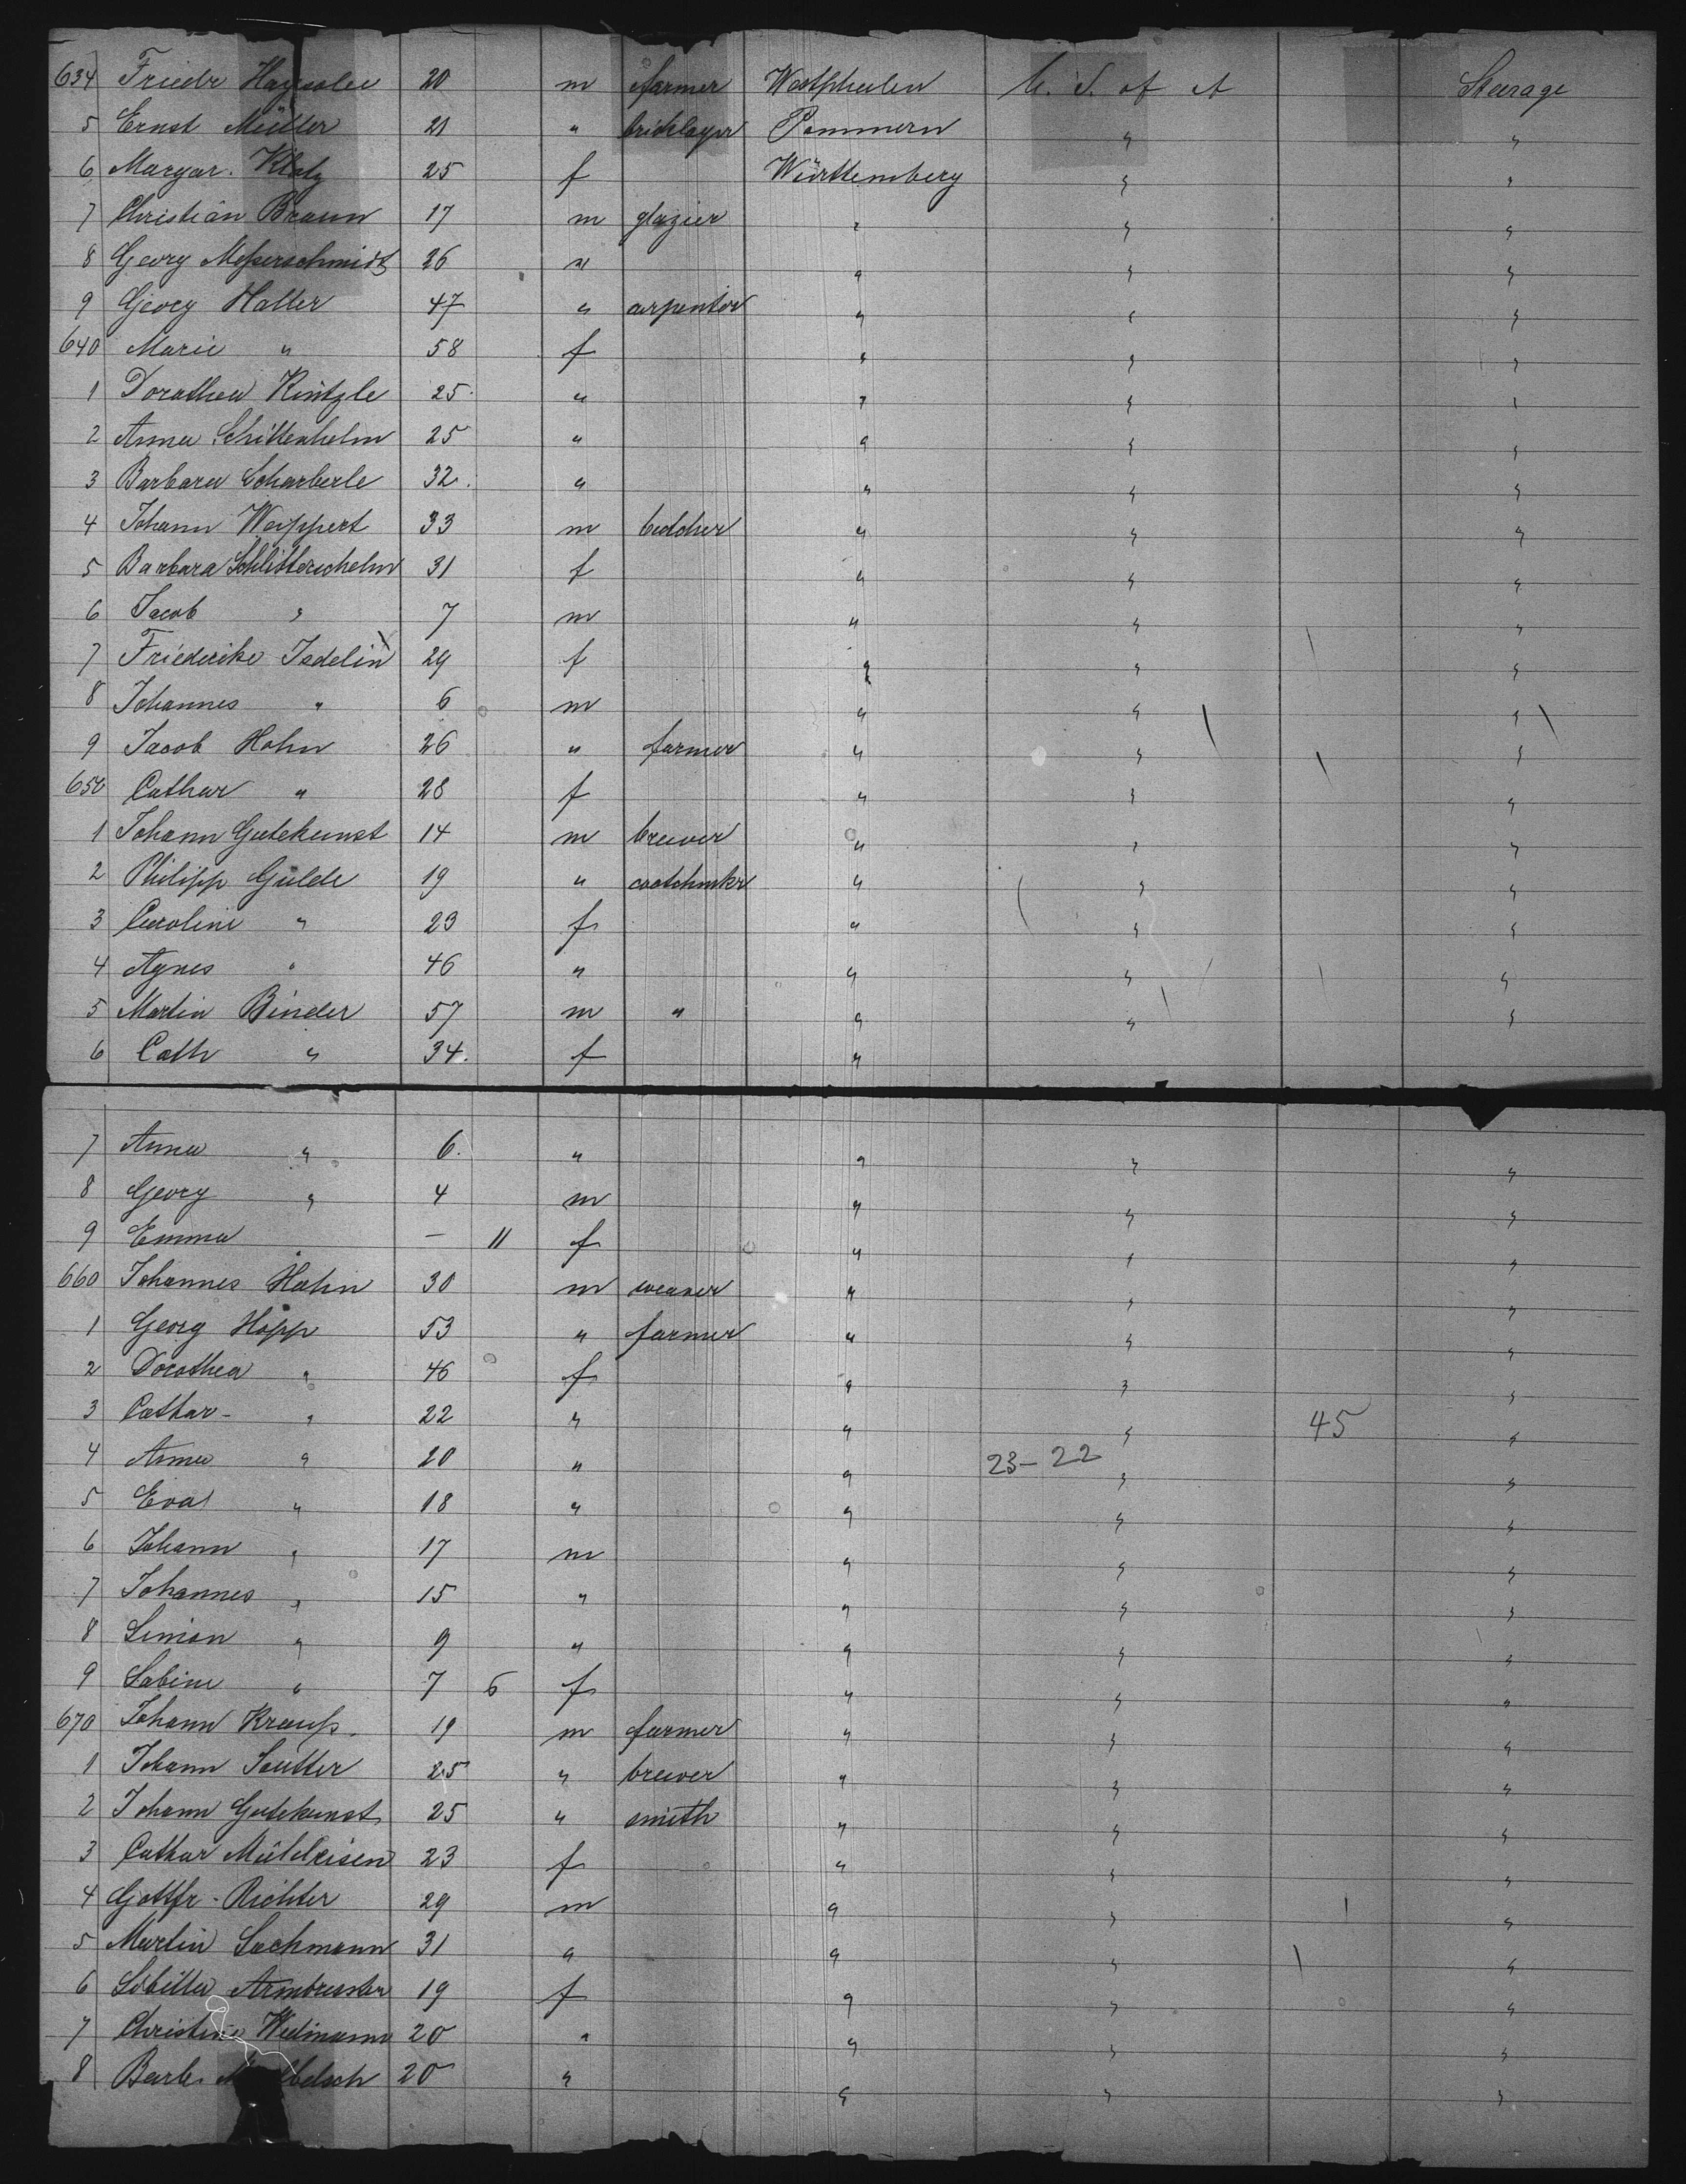 634 Friedr 20 m farmer Westphalen U. S. of A Steerage
5 Ernst Müller 21 " bricklayer Pommern " "
6 Margar. Klotz 25 f Württemberg " "
7 Christian Braun 17 m glazier " " "
8 Georg Meßerschmidt 26 " " " "
9 Georg Haller 47 " carpenter " " "
640 Marie " 58 f " " "
1 Dorothea Kintzle 25 " " " "
2 Anna Schittenhelm 25 " " " "
3 Barbara Scharberle 32. " " " "
4 Johann Weippert 33 m butcher " " "
5 Barbara Schlitterichelm 31 f " " "
6 Jacob " 7 m " " "
7 Friederike Isdelin 29 f " " "
8 Johannes " 6 m " " "
9 Jacob Hahn 26 " farmer " " "
650 Cathar " 28 f " " "
1 Johann Gutekunst 14 m brewer " " "
2 Philipp Gulde 19 " " " "
3 Caroline " 23 f " " "
4 Agnes " 46 " " " "
5 Martin Binder 57 m " " " "
6 Cath " 34. f "
7 Anna " 6. " " " "
8 Georg " 4 m " " "
9 Emma " — 11 f " " "
660 Johannes Hahn 30 m weaver " " "
1 Georg Hopp 53 " farmer " " "
2 Dorothea " 46 f " " "
3 Cathar- " 22 " " " 45 "
4 Anna " 20 " " 23-22 " "
5 Eva " 18 " " " "
6 Johann " 17 m " " "
7 Johannes " 15 " " " "
8 Simon " 9 " " " "
9 Sabine " 7 6 f " " "
670 Johann Krauß 19 m farmer " " "
1 Johann Sautter 25 " brewer " " "
2 Johann Gutekunst 25 " smith " " "
3 Cathar Mühleisen 23 f " " "
4 Gottfr- Richter 29 m " " "
5 Martin Lachmann 31 " " " "
6 Armbruster 19 f " " "
7 Christine Weimann 20 " " " "
8 Barb. 20 " " " "